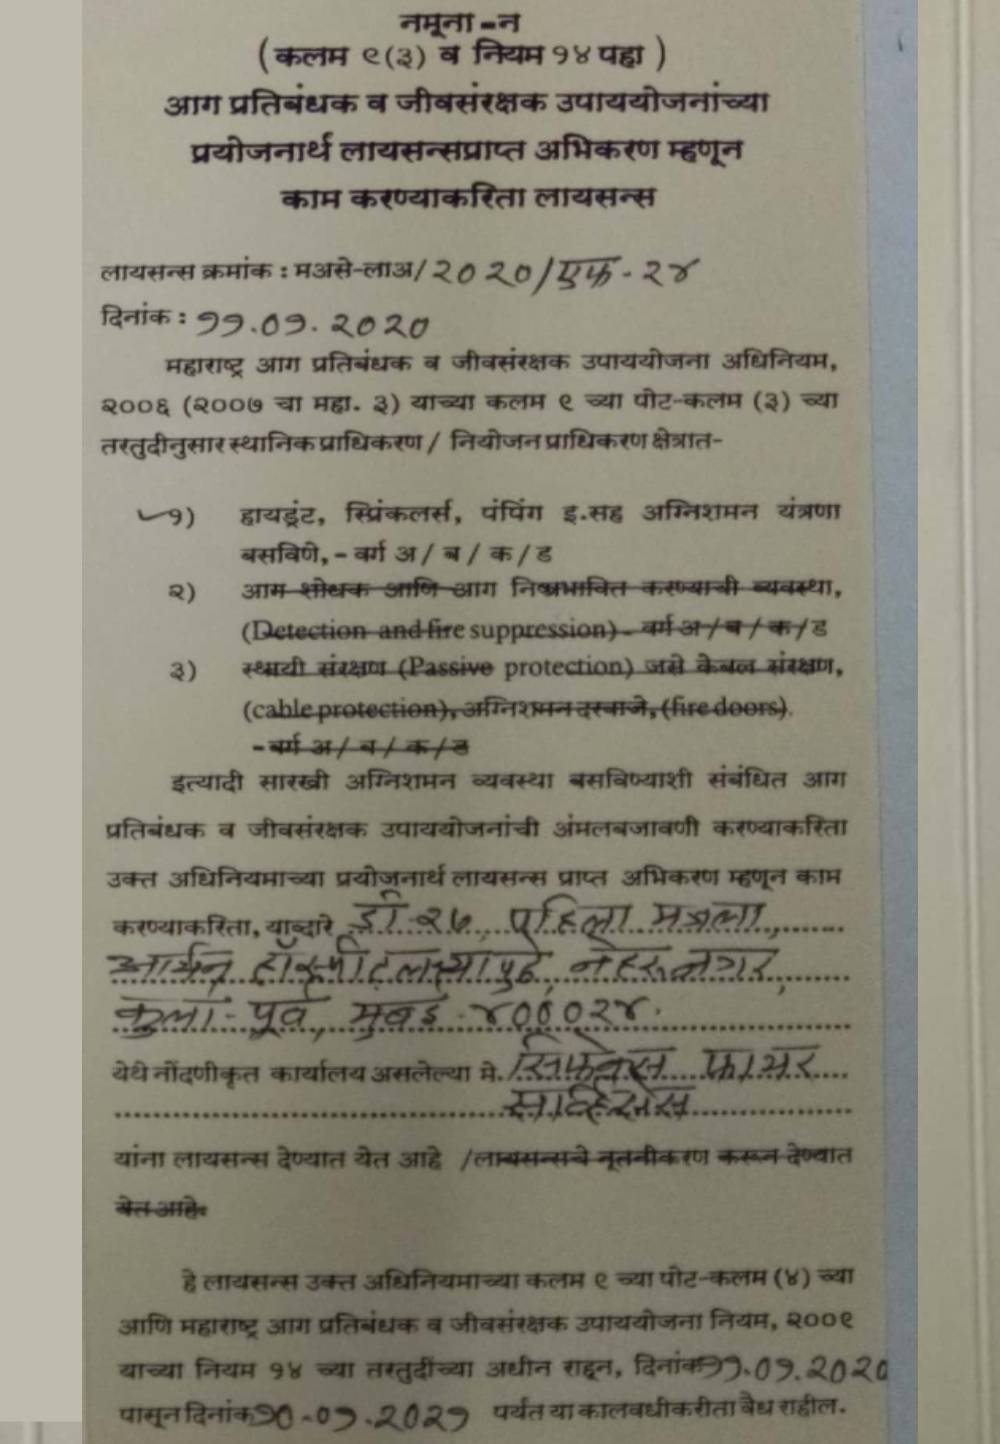 नमूना -न
(कलम ९(३) व नियम १४ पहा )
आग प्रतिबंधक व जीवसंरक्षक उपाययोजनांच्या
प्रयोजनार्थ लायसन्सप्राप्त अभिकरण म्हणून
काम करण्याकरिता लायसन्स
लायसन्स क्रमांक : मअसे-लाअ/२०२०/एफ-२४
दिनांक : ११.०१.२०२०
महाराष्ट्र आग प्रतिबंधक व जीवसंरक्षक उपाययोजना अधिनियम,
२००६ (२००७ चा महा. ३) याच्या कलम ९ च्या पोट-कलम (३) च्या
तरतुदीनुसार स्थानिक प्राधिकरण / नियोजन प्राधिकरण क्षेत्रात-
१) हायड्रंट, स्प्रिंकलर्स, पंपिंग इ.सह अग्निशमन यंत्रणा
बसविणे, - वर्ग अ / ब / क / ड
२) आग शोधक आणि आग निष्प्रभावित करण्याची व्यवस्था,
(Detection and fire suppression) - वर्ग अ / ब / क / ड
३) स्थायी संरक्षण (Passive protection) जसे केबल संरक्षण,
(cable protection), अग्निशमन दरवाजे, (fire doors).
- वर्ग अ / ब / क / ड
इत्यादी सारखी अग्निशमन व्यवस्था बसविण्याशी संबंधित आग
प्रतिबंधक व जीवसंरक्षक उपाययोजनांची अंमलबजावणी करण्याकरिता
उक्त अधिनियमाच्या प्रयोजनार्थ लायसन्स प्राप्त अभिकरण म्हणून काम
करण्याकरिता, याव्दारे डी-२७, पहिला मजला,
आर्यन हॉस्पीटलच्या पुढे, नेहरू नगर,
कुर्ला-पूर्व, मुंबई-४०००२४.
येथे नोंदणीकृत कार्यालय असलेल्या मे. सिफेक्स फायर
सर्व्हिसेस
यांना लायसन्स देण्यात येत आहे /लायसन्सचे नूतनीकरण करून देण्यात
येत आहे.
हे लायसन्स उक्त अधिनियमाच्या कलम ९ च्या पोट-कलम (४) च्या
आणि महाराष्ट्र आग प्रतिबंधक व जीवसंरक्षक उपाययोजना नियम, २००९
याच्या नियम १४ च्या तरतुदींच्या अधीन राहून, दिनांक ११.०१.२०२०
पासून दिनांक १०-०१.२०२१ पर्यंत या कालवधीकरीता वैध राहील.